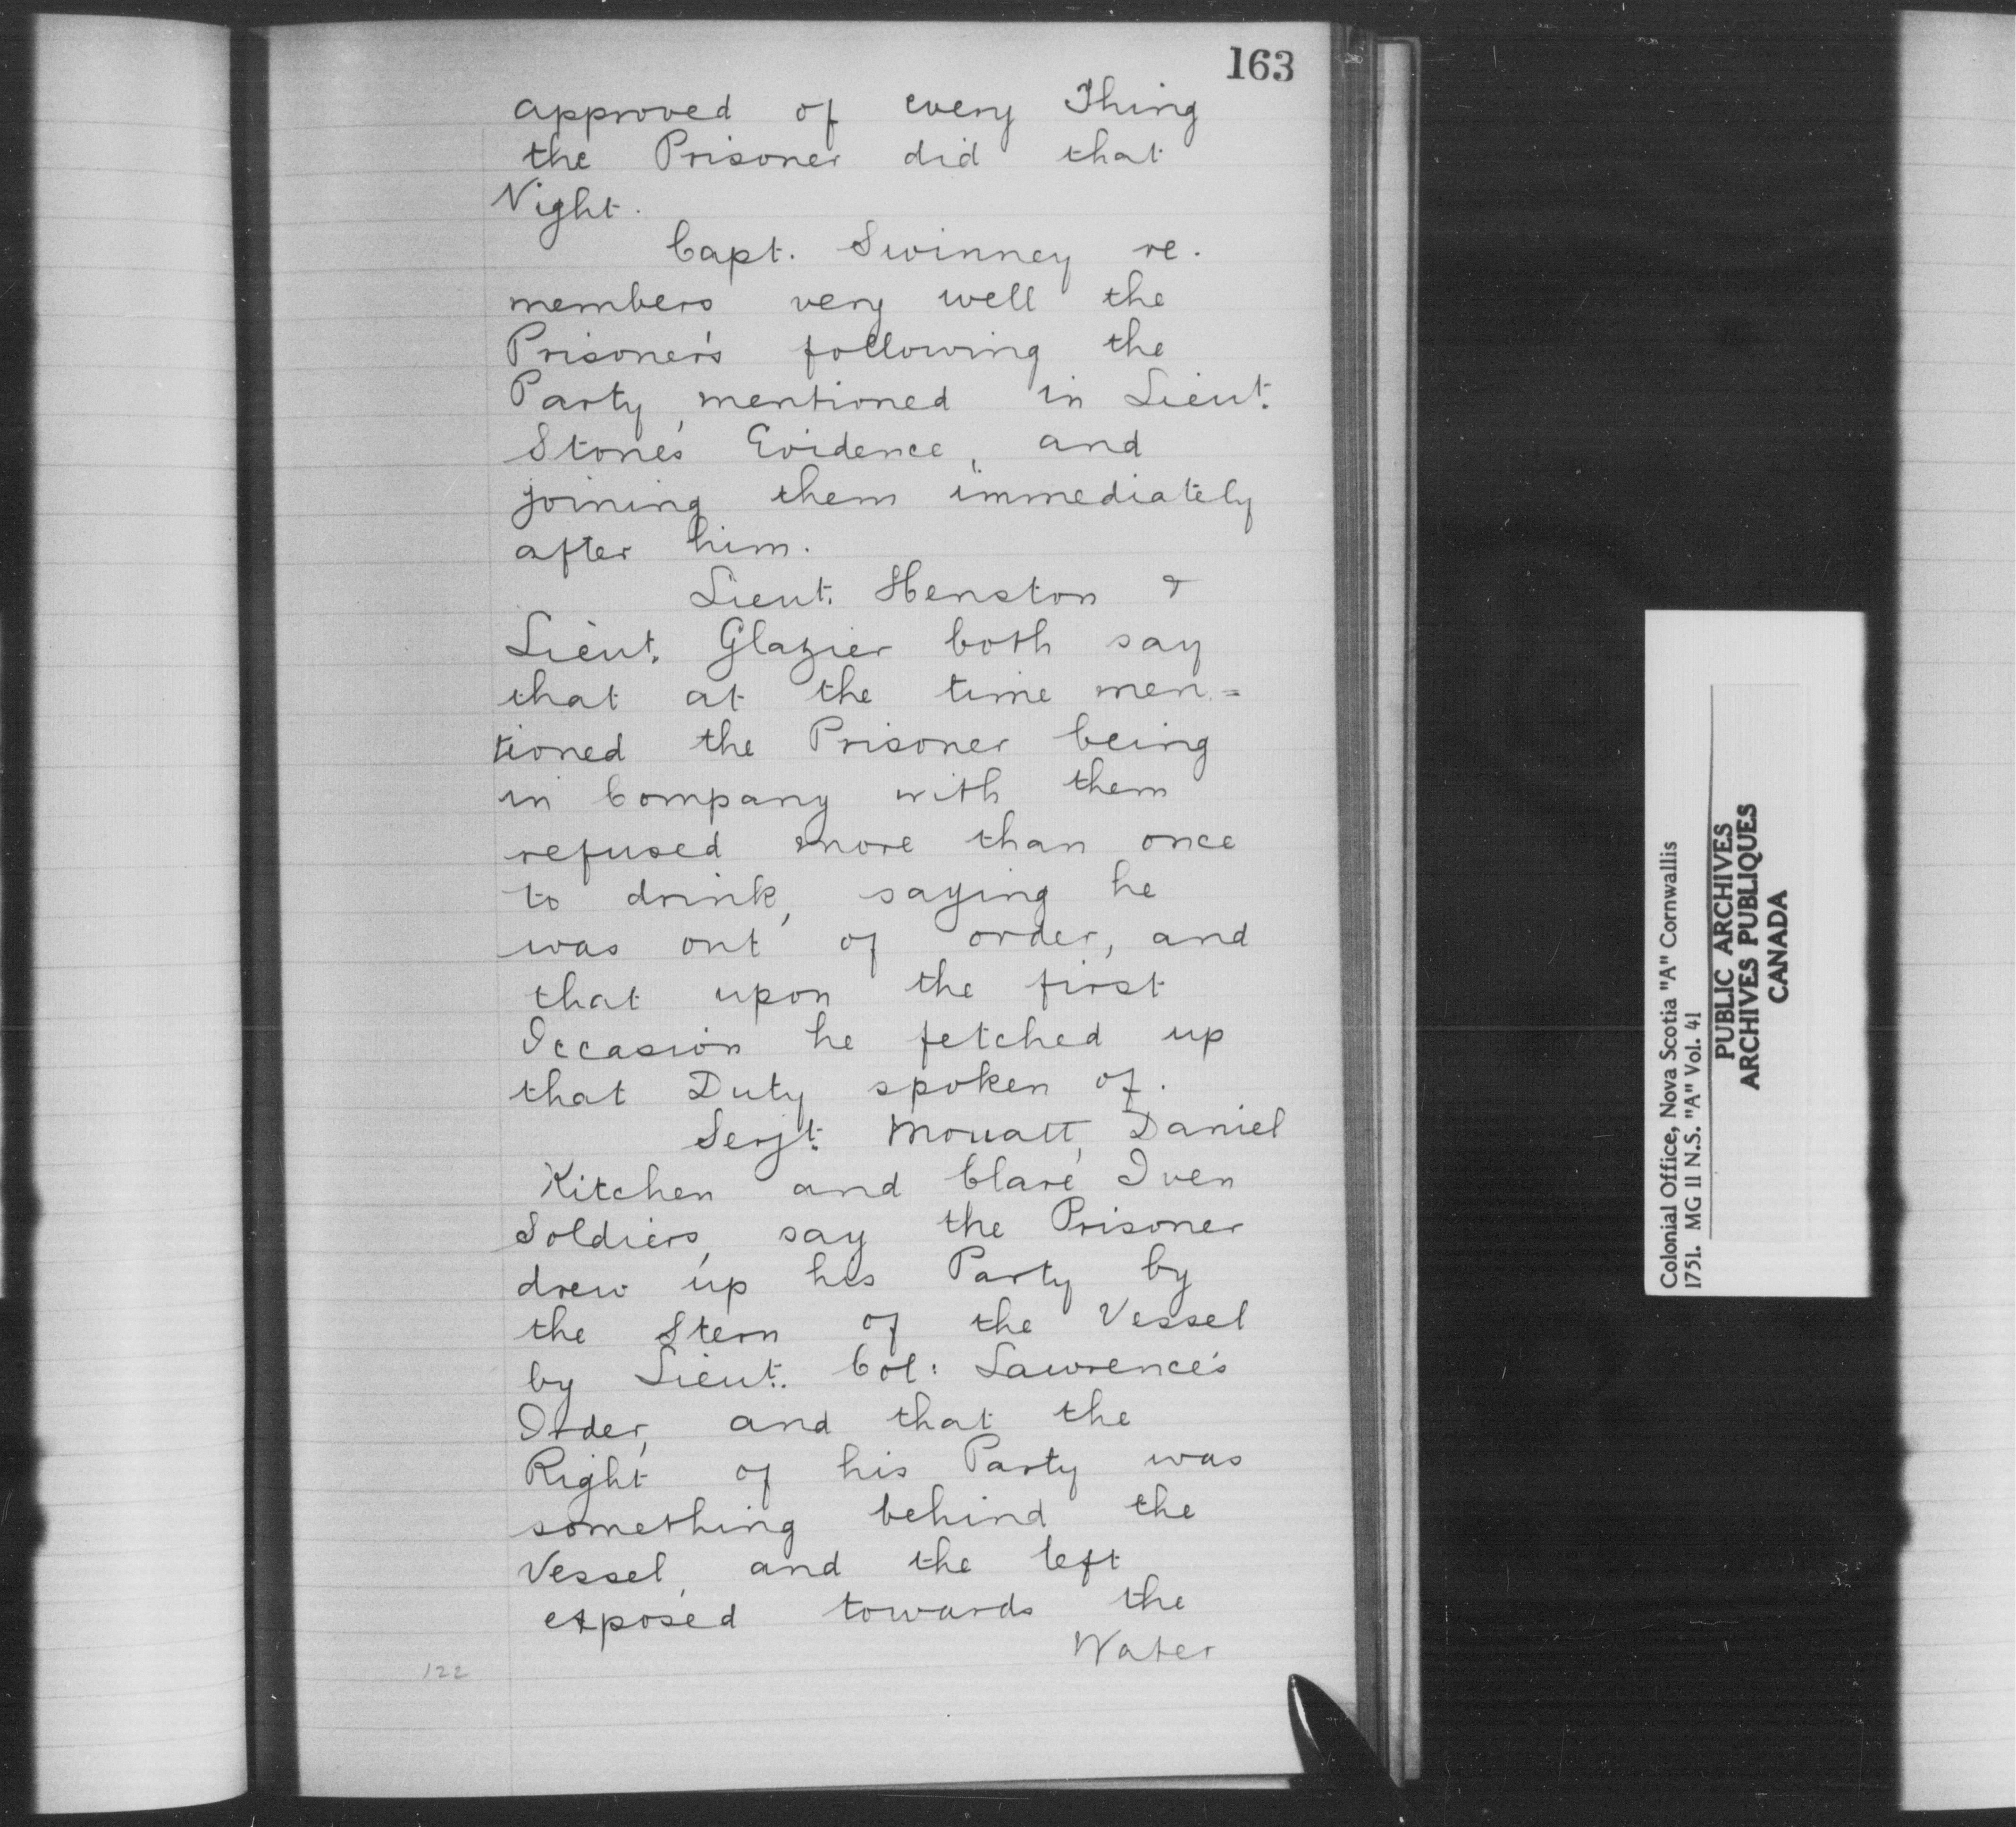 163
approved of every Thing
the Prisoner did that
Night.
Capt. Swinney re-
members very well the
Prisoner's following the
Party, mentioned in Lieut.
Stone's Evidence, and
joining them immediately
after him.
Lieut. Henston &
Lieut. Glazier both say
that at the time men=
tioned the Prisoner being
in Company with them
refused more than once
to drink, saying he
was out of order, and
that upon the first
Occasion he fetched up
that Duty spoken of.
Serjt. Mouatt, Daniel
Kitchen and Clare Iven
Soldiers, say the Prisoner
drew up his Party by
the Stern of the Vessel
by Lieut. Col: Lawrence's
Order, and that the
Right of his Party was
something behind the
Vessel, and the left
exposed towards the
Water
122
Colonial Office, Nova Scotia "A" Cornwallis
1751. MG 11 N.S. "A" Vol. 41
PUBLIC ARCHIVES
ARCHIVES PUBLIQUES
CANADA